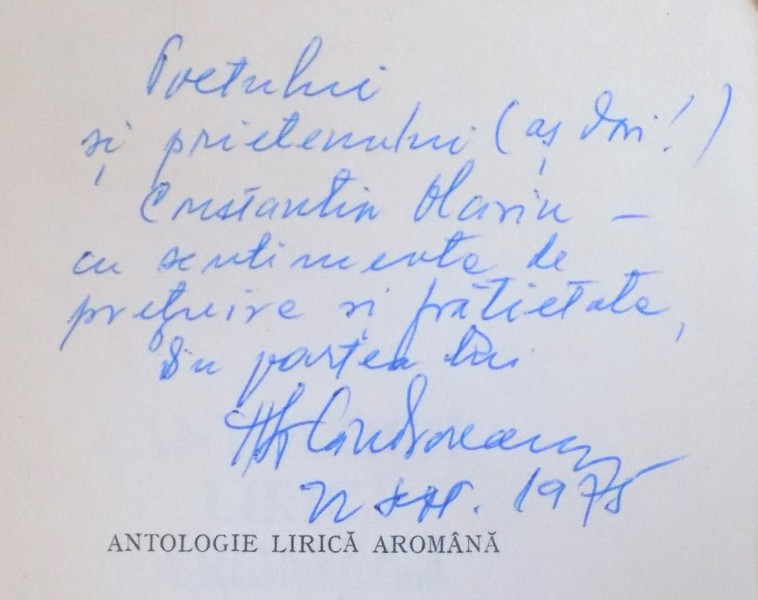 Poetului
și prietenului (aș dori!)
Constantin Olariu –
cu sentimente de
prețuire și frățietate,
din partea lui
H Candroveanu
22 sept. 1975
ANTOLOGIE LIRICĂ AROMÂNĂ